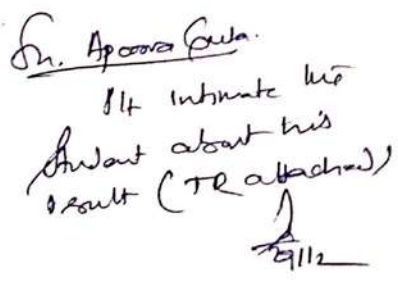 Sh. Apoorva Gupta.
Plz intimate the
student about his
result (TR attached)
29/12